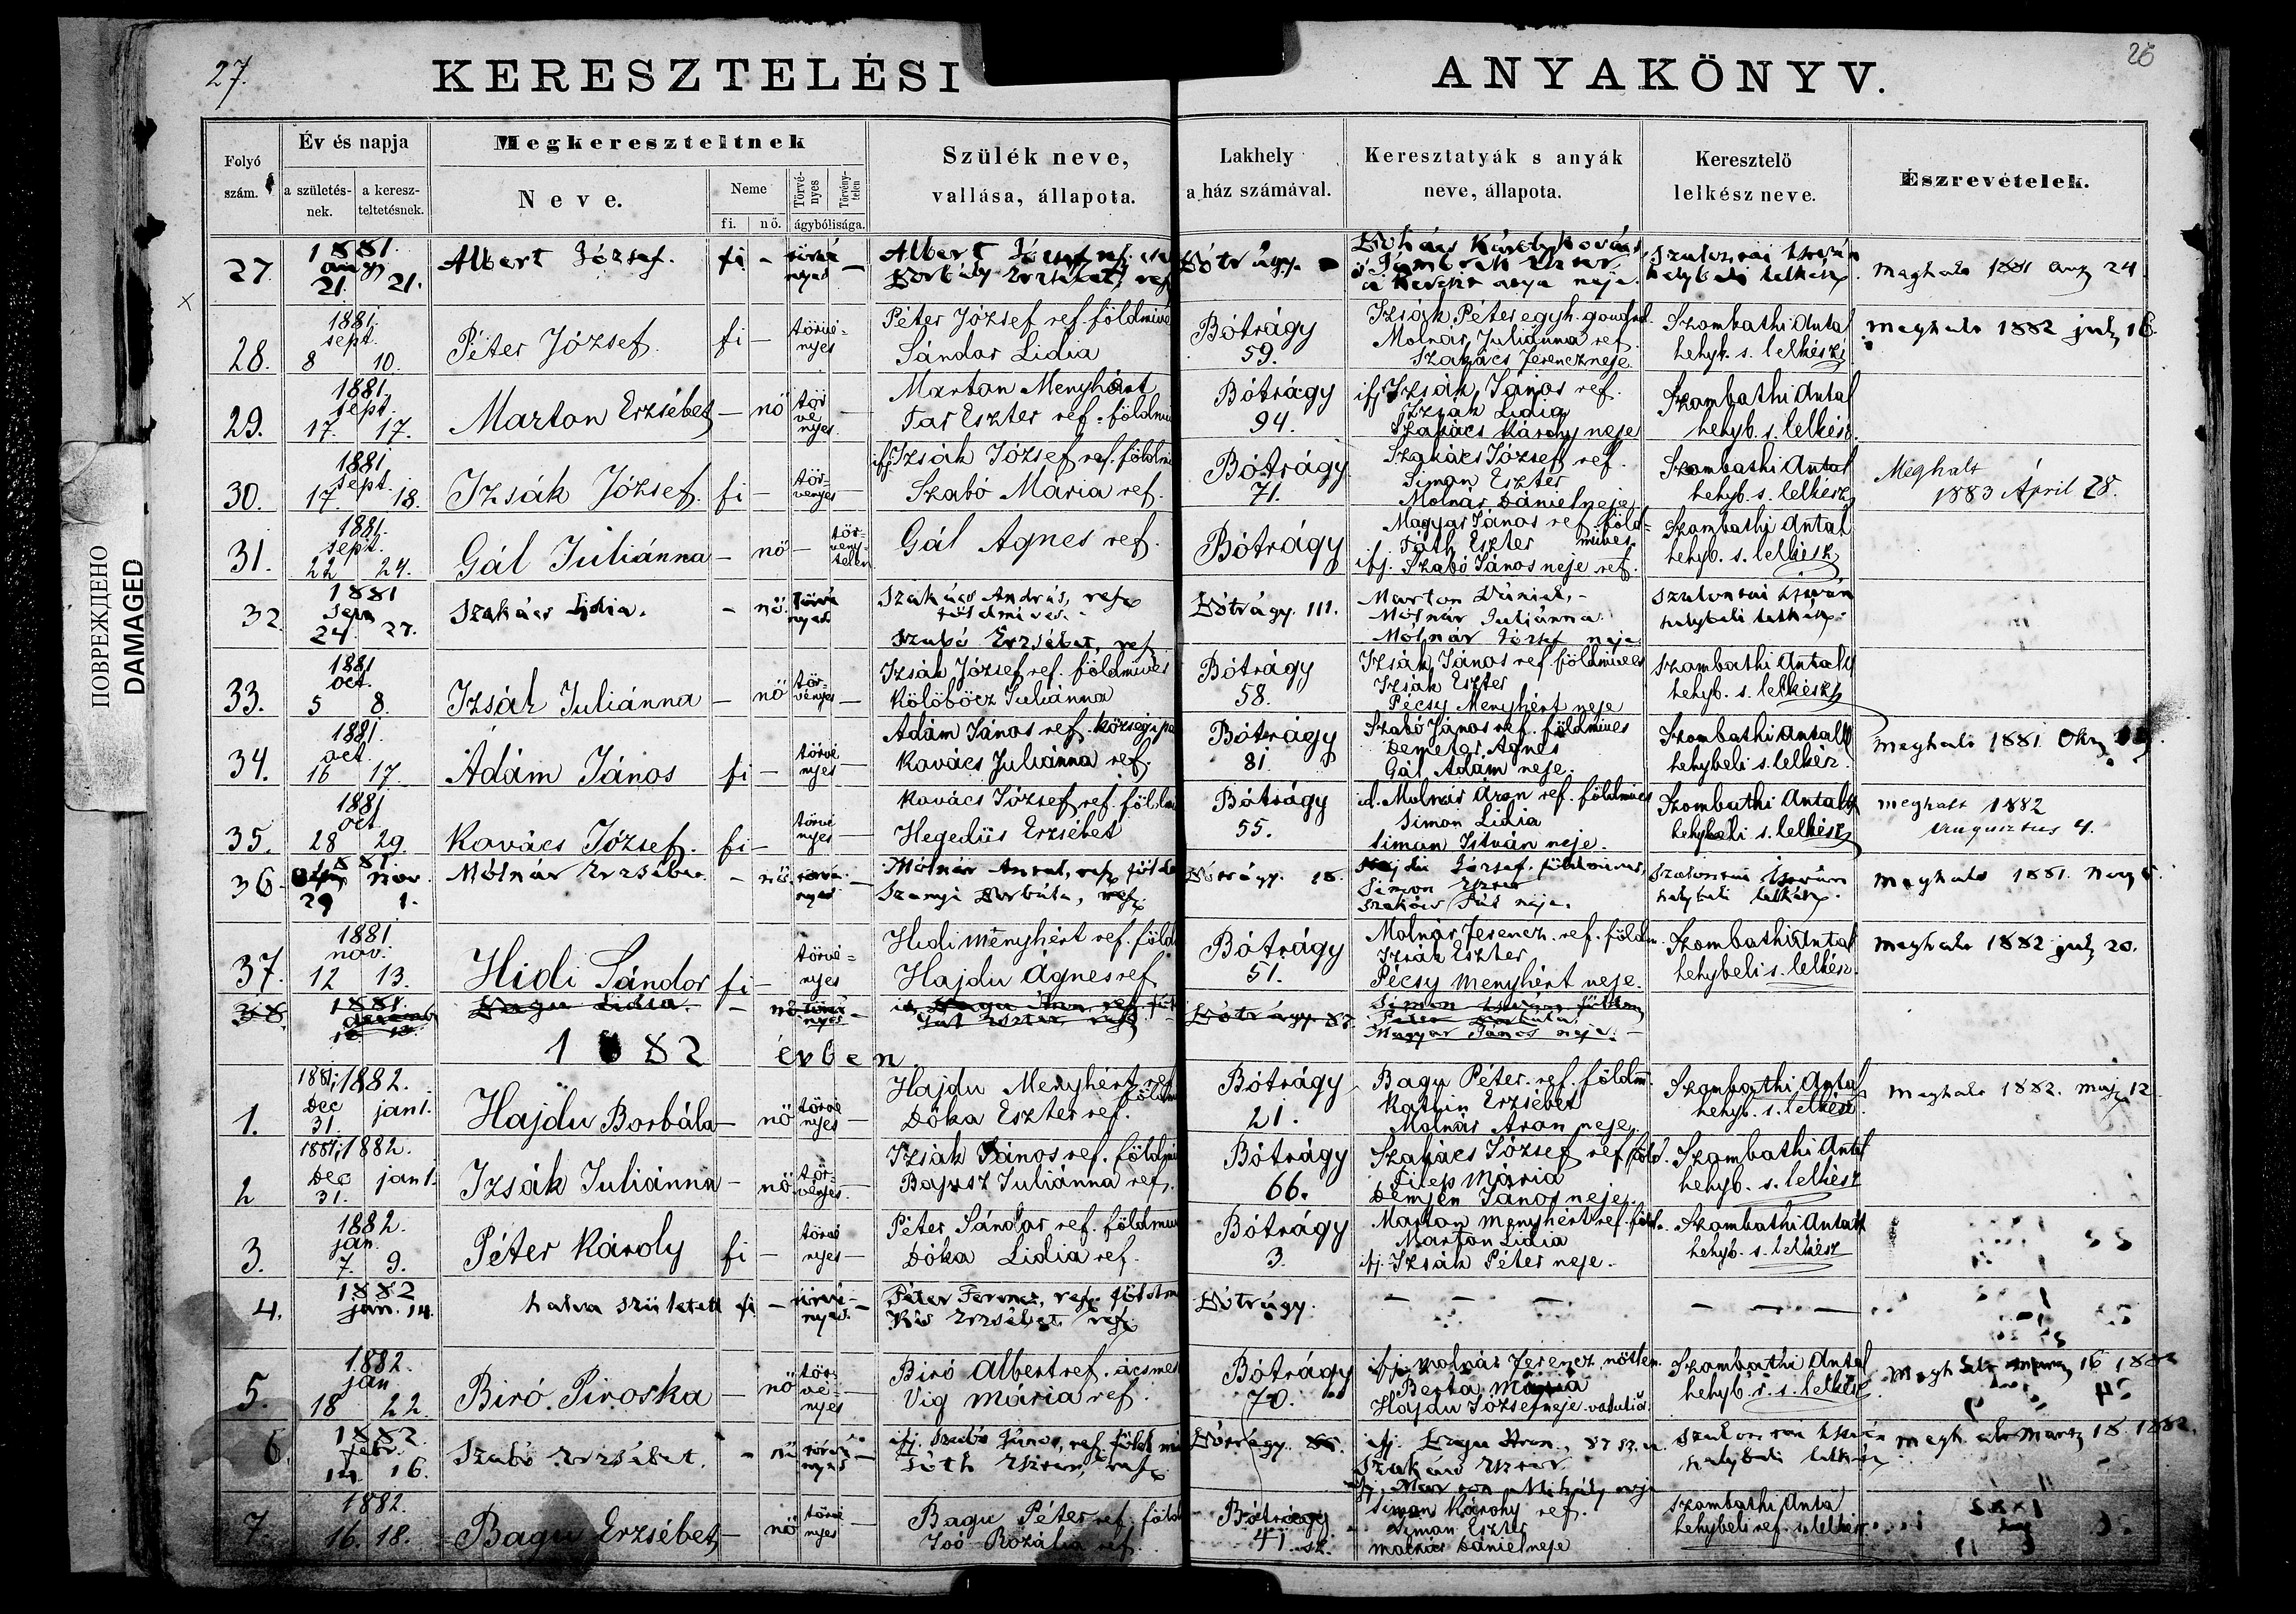 27.
26
KERESZTELÉSI ANYAKÖNYV.
Folyó szám.
Év és napja
a születés-nek.
a keresz-teltetésnek.
Megkereszteltnek
Neve.
Neme
fi.
nő.
Törvé-nyes
Törvény-telen
ágybólisága.
Szülék neve,
vallása, állapota.
Lakhely
a ház számával.
Keresztatyák s anyák
neve, állapota.
Keresztelő
lelkész neve.
Észrevételek.
ПОВРЕЖДЕНО
DAMAGED
27. 1881. aug 21. 21. Albert József. fi - törvé nyes - Albert József ref.
Borbély Erzsébet, ref
Bótrágy. helybeli lelkész. meghalt 1881 aug 24.
28. 1881. sept. 8 10. Péter József. fi - törvé-nyes Péter József ref. földmive
Sándor Lidia
Bótrágy 59. Izsák Péter egyh. gondnok
Molnár Juliánna ref.
Szakács Ferencz neje
Szombathi Antal
helyb. s. lelkész
meghalt 1882 july 16.
29. 1881. sept. 17. 17. Marton Erzsébet - nő tör vé nyes - Marton Menyhért
Tar Eszter ref. földmi
Bótrágy 94. ifj Izsák János ref.
Izsák Lidia
Szakács Károly neje
Szombathi Antal
helyb. s. lelkész.
30. 1881 sept. 17. 18. Izsák József. fi - tör-vényes - ifj. Izsák József ref. földmi
Szabó Mária ref.
Bótrágy 71. Szakács József ref.
Simon Eszter
Molnár Dániel neje
Szombathi Antal
helyb. s. lelkész
Meghalt
1883 April 28.
31. 1881. sept. 22 24. Gál Juliánna - nő - tör-vény-telen Gál Agnes ref.
Bótrágy Magyar János ref. föld-mives.
Tóth Eszter
ifj. Szabó János neje ref.
Szombathi Antal
helyb. s. lelkész
32. 1881 sep 24. 27. Szakács Lidia. - nő. törvé nyes Szakács András, ref
földmives. -
Szabó Erzsébet, ref
Bótrágy. 111. Marton Dániel, -
Mólnár Juliánna
Mólnár József neje
helybeli lelkész.
33. 1881 oct. 5 8. Izsák Juliánna - nő tör-vényes - Izsák József ref. földmives
Kölöböcz Juliánna
Bótrágy 58. Izsák János ref. földmives
Izsák Eszter
Pécsy Menyhért neje
Szombathi Antal
helyb. s. lelkész
34. 1881. oct. 16 17. Ádám János fi - törvé nyes - Adám János ref. községi
Kovács Juliánna ref.
Bótrágy 81. Szabó János ref. földmives
Demeter Agnes
Gál Adám neje.
Szombathi Antal
helybeli s. lelkész.
meghalt 1881
35. 1881 oct 28 29. Kovács József. fi - törvé nyes - Kovács József ref. földm
Hegedüs Erzsébet
Bótrágy 55. id. Molnár Áron ref. földmives
Simon Lidia
Simon István neje.
Szombathi Antal
helybeli s. lelkész
meghalt 1882
Augusztus 4.
36. 1881. nov. 29 1. Mólnár Erzsébet - nő. nyes - Mólnár Antal, ref
Szanyi Borbála, ref.
Bótrágy. József földmives,
Simon Eszter
Szakács Pál neje.
helybeli lelkész.
meghalt 1881.
37. 1881 nov. 12 13. Hidi Sándor fi - törvé-nyes Hidi Menyhért ref. föld
Hajdu Ágnes ref
Bótrágy 51. Molnár Ferencz. ref. földm.
Izsák Eszter
Pécsy Menyhért neje.
Szombathi Antal
helybeli s. lelkész.
meghalt 1882 july 20.
38. 1881. Bagu Lidia. - nő törvé nyes -
Gál Eszter, ref
Bótrágy 87. Simon István földm
Péter Borbála
Magyar János neje. -
1882 évben
1. 1881; 1882. Dec 31. jan 1. Hajdu Borbála - nő törvé nyes - Hajdu Menyhért ref. földm
Dóka Eszter ref.
Bótrágy 21. Bagu Péter. ref. földm.
Erzsébet
Molnár Aron neje.
Szombathi Antal
helyb. s. lelkész.
meghalt 1882. maj 12
2 1881; 1882. Dec 31. jan 1. Izsák Juliánna - nő tör-vényes. - Izsák János ref. földmi
Bajusz Juliánna ref.
Bótrágy 66. Szakács József ref. föld.
Filep Mária
Demjén János neje.
Szombathi Antal
helyb. s. lelkész
3. 1882. jan. 7. 9. Péter Károly fi - törvé nyes - Péter Sándor ref. földmive
Dóka Lidia ref.
Bótrágy 3. Marton Menyhért ref. földm.
Marton Lidia
ifj. Izsák Péter neje.
Szombathi Antal
helyb. s. lelkész
4. 1882 jan. 14. halva született fi - törvé-nyes. - Péter Ferencz, ref. földm
Kis Erzsébet ref
Bótrágy. - - - - - -
5. 1882. jan 18 22. Biró Piroska - nő tör-vé-nyes - Biró Albert ref. ácsmes
Vig Mária ref.
Bótrágy 70. ifj. Molnár Ferencz nőtlen.
Berta Mária
Hajdu József neje
Szombathi Antal
helyb. r. s. lelkész
16 1882
6. 1882 febr. 14. 16. Szabó Erzsébet. - nő törvé nyes - ifj. Szabó János, ref. földmi
Tóth Eszter, ref
Bótrágy ifj. Bagu Áron,
Szakács Eszter
ifj. Marton Mihály neje
helybeli lelkész
megh 18. 1882.
7. 1882. 16. 18. Bagu Erzsébet - nő törvé nyes - Bagu Péter ref. föld
Joó Rozália ref.
Bótrágy 41. sz. Simon Károly ref.
Simon Eszter
Molnár Dániel neje
Szombathi Antal
helybeli ref. s. lelkész.